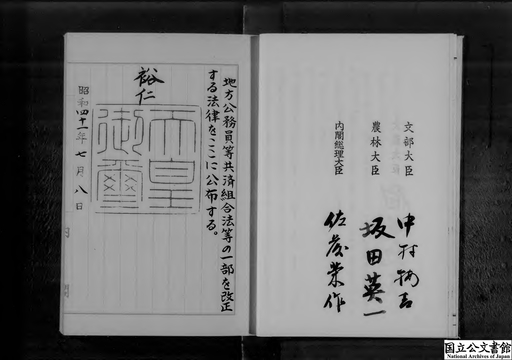 文部大臣 中村梅吉
農林大臣 坂田英一
内閣総理大臣 佐藤榮作
地方公務員等共済組合法等の一部を改正
する法律をここに公布する。
裕仁
天皇
御璽
昭和四十一年七月八日
国立公文書館
National Archives of Japan